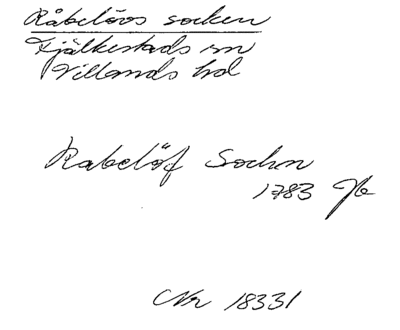 Råbelövs socken
Fjälkestads sn
Villands hd
Rabelöf Sochn
1783
Nr 18331